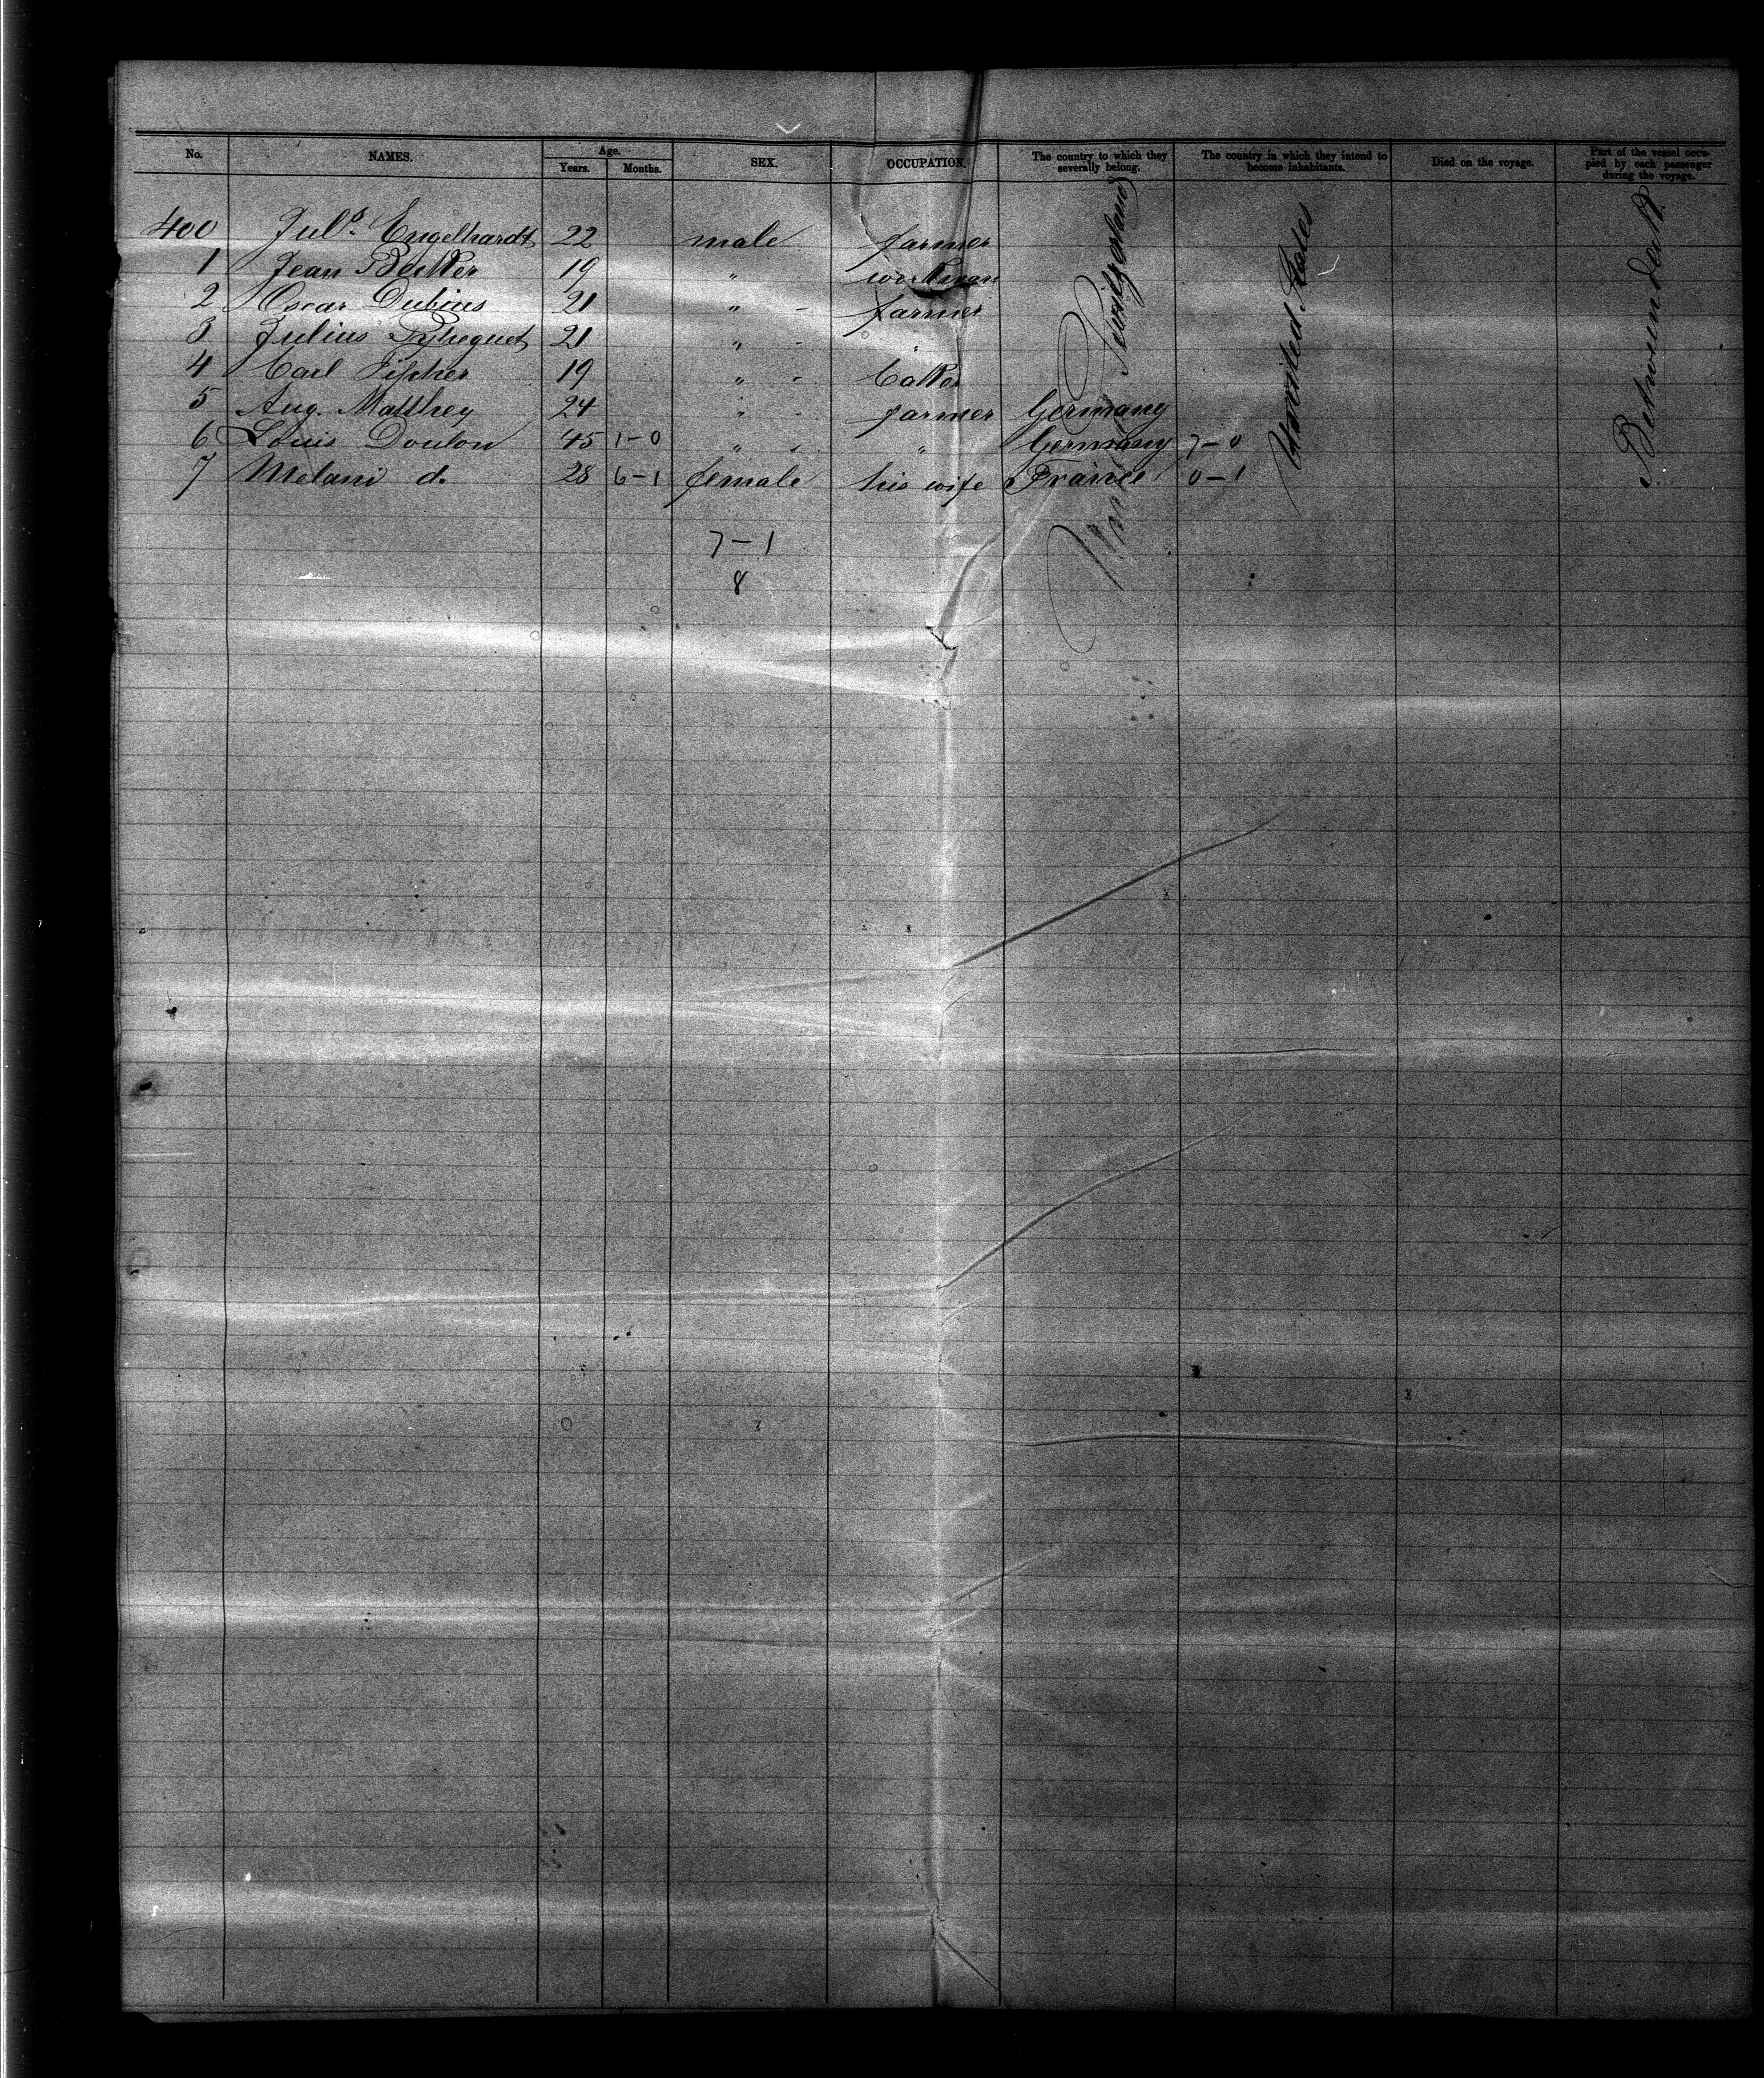 No. NAMES. Age. Years. Months. SEX. OCCUPATION. The country to which they severally belong. The country in which they intend to become inhabitants. Died on the voyage. Part of the vessel occupied by each passenger during the voyage.
400 Juls. Engelhardt 22 male farmer
1 Jean Becker 19 " workman
2 Oscar Dubius 21 " - farmer
3 Julius 21 " -
4 Carl 19 " - baker
5 Aug. Matthey 24 " - farmer Germany
6 Louis Doulon 45 1-0 " - " Germany 7-0
7 Melani d. 28 6-1 female his wife France 0-1
7-1
8
Switzerland
United States
Between deck